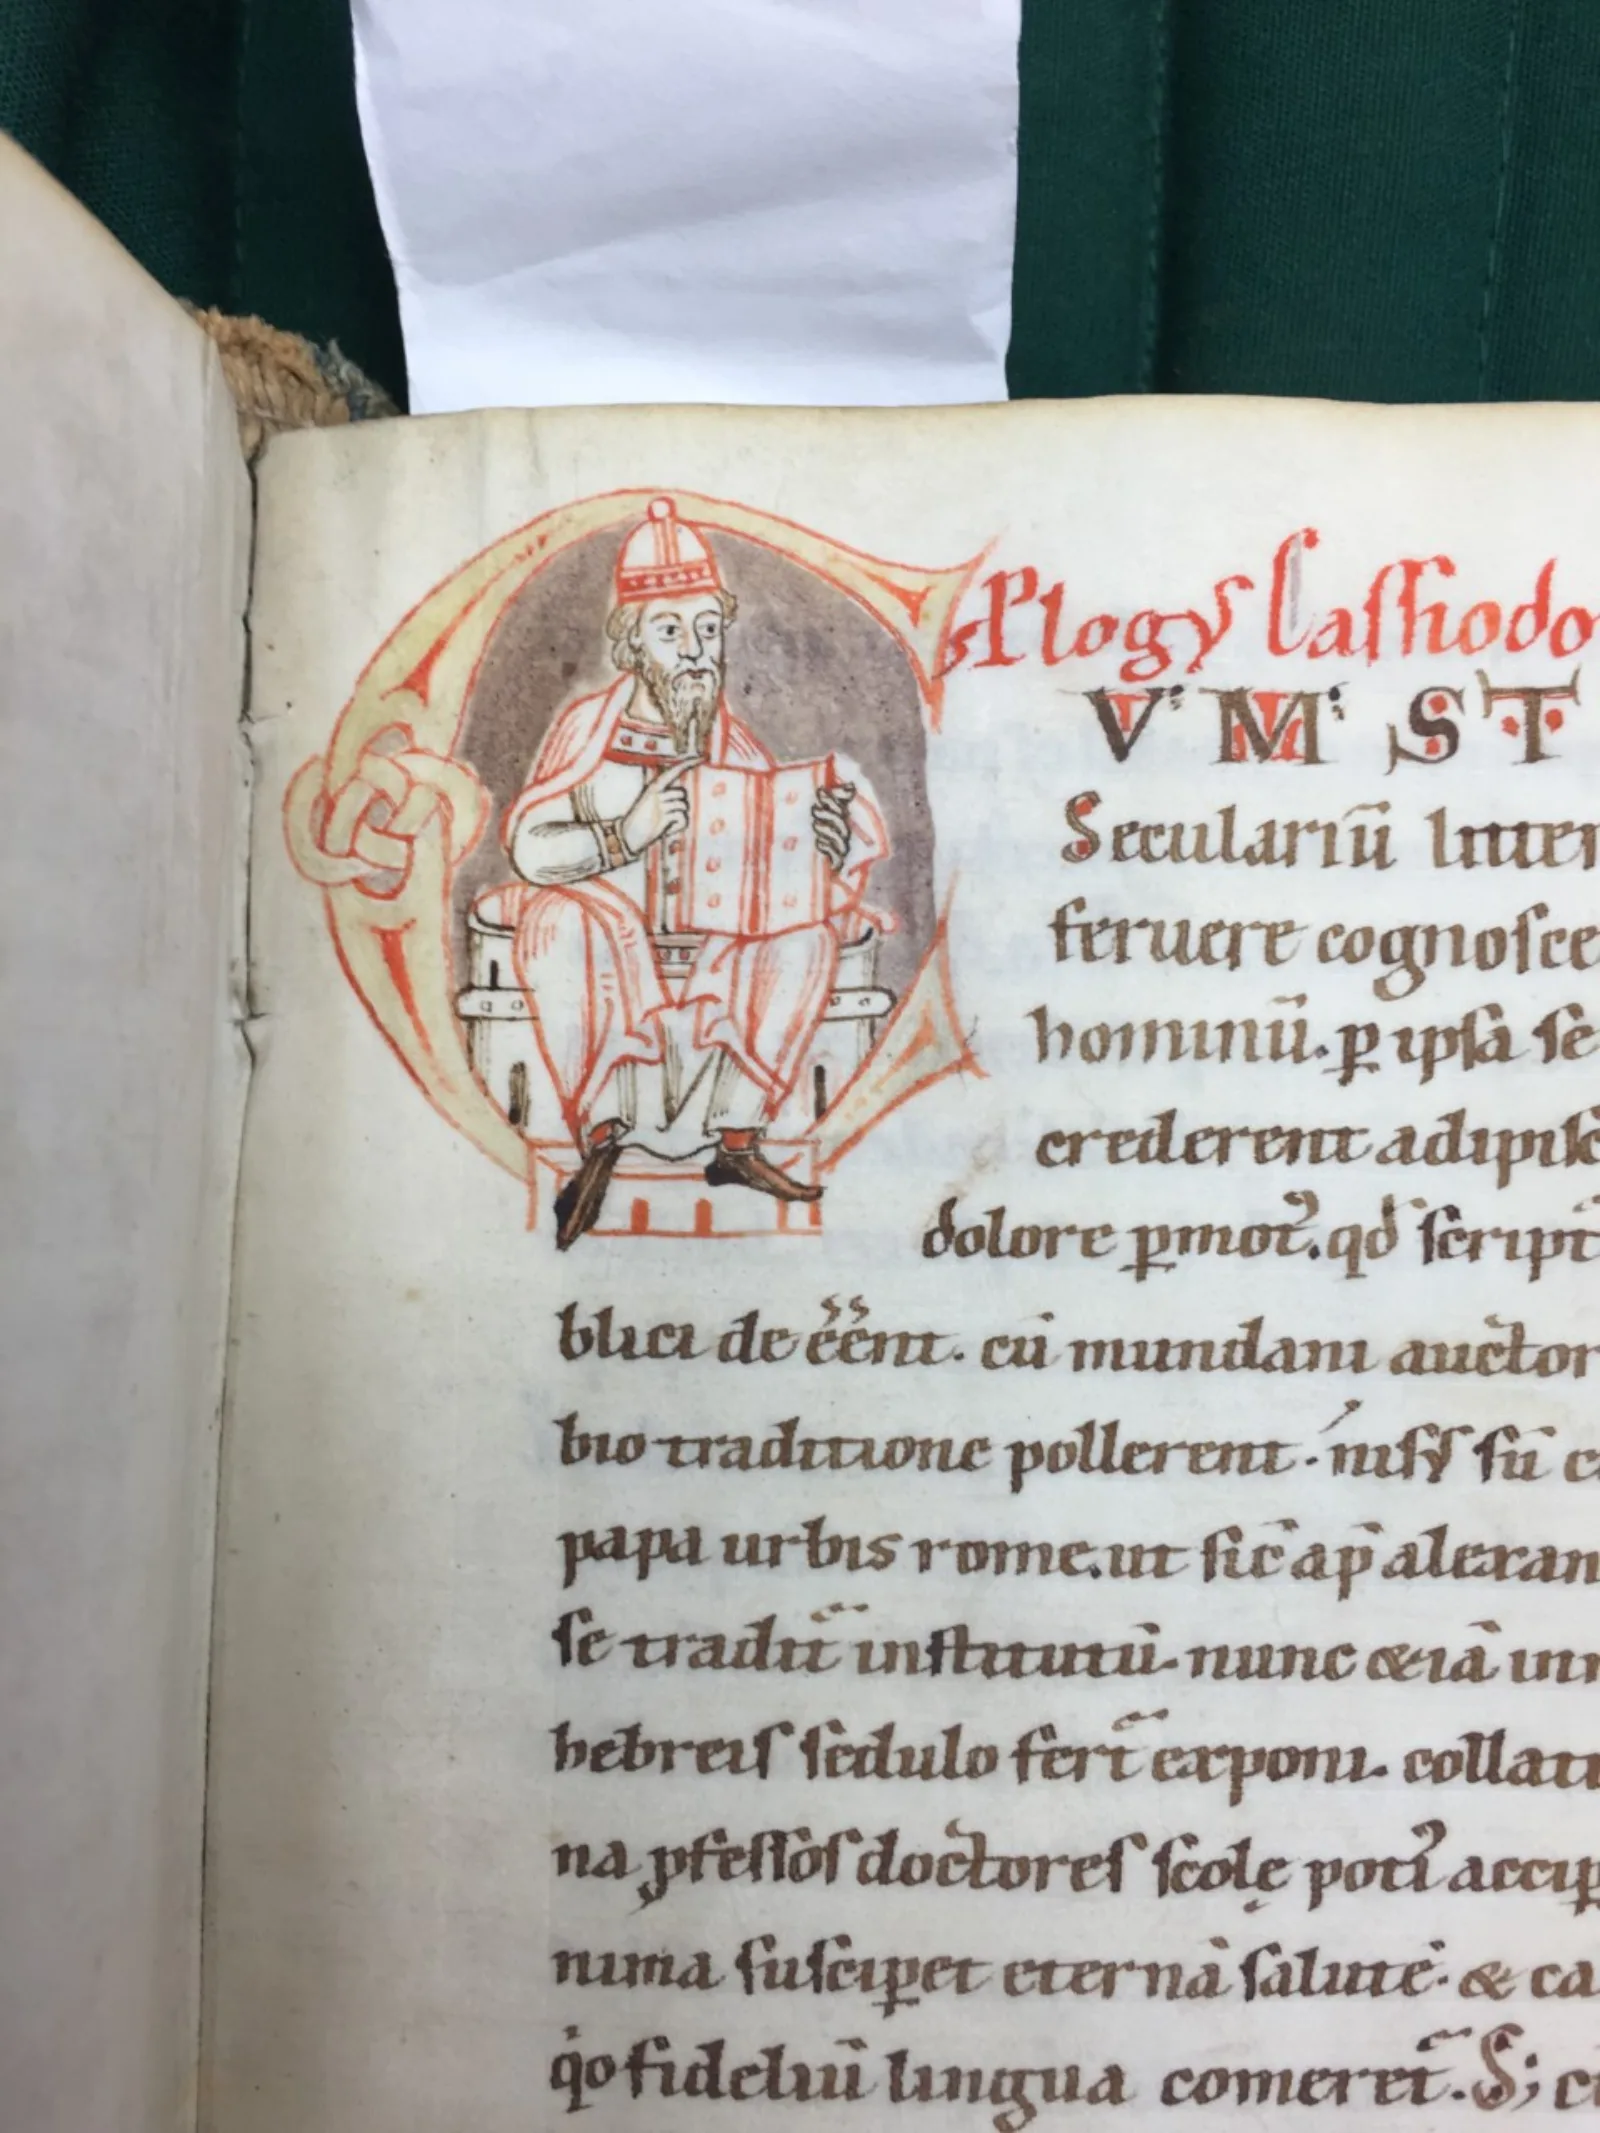 Plogꝰ Caſſiodo
C V̇ Ṁ S T
Seculariū litter
feruere cognoſce
hominū. ꝑ ipſā ſe
crederent adipiſc
dolore ꝑmotꝰ. qd̕ ſcript
blici de ẽẽnt. cū mundani auctor
bio traditione pollerent. niſꝰ ſū c
papa urbis rome. ut ſic̄ ap̄ alexan
ſe tradit̄ inſtitutū. nunc &iā in
hebreiſ ſedulo fert̄ exponi. collati
na ꝓfeſſoſ doctoreſ ſcolę potiꝰ accip
nima ſuſciꝑet eternā ſalutē. & ca
qͦ fideliū lingua comeret̄. S; ci